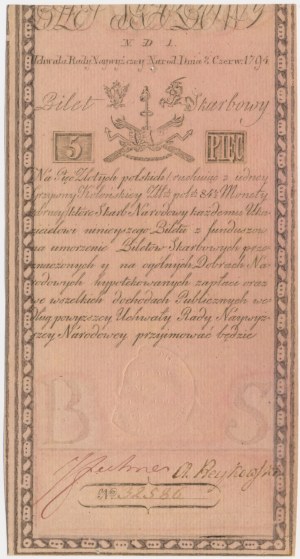 N D 1.
Uchwała Rady Naywyższey Narod: Dnia 8. Czerw: 1794
Bilet Skarbowy
5 PIĘC
Na Pięc Złotych polskich rachując z iedney
Grzywny Kolonskiey Złt: pols: 84½ Monety
Skarb Narodowy każdemu Oka-
zicielowi ninieyszego Biletu z funduszow
na umorzenie Biletow Skarbowych prze-
znaczonych y na ogulnych Dobrach Na-
rodowych hypotekowanych zapłaci oraz
we wszelkich dochodach Publicznych we-
dług powyzszey Uchwały Rady Naywyż-
szey Narodowey przyimować będzie
B S
Nro